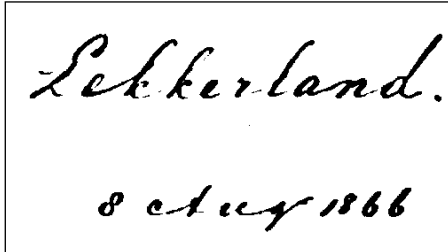 Lekkerland.
8 Aug 1866